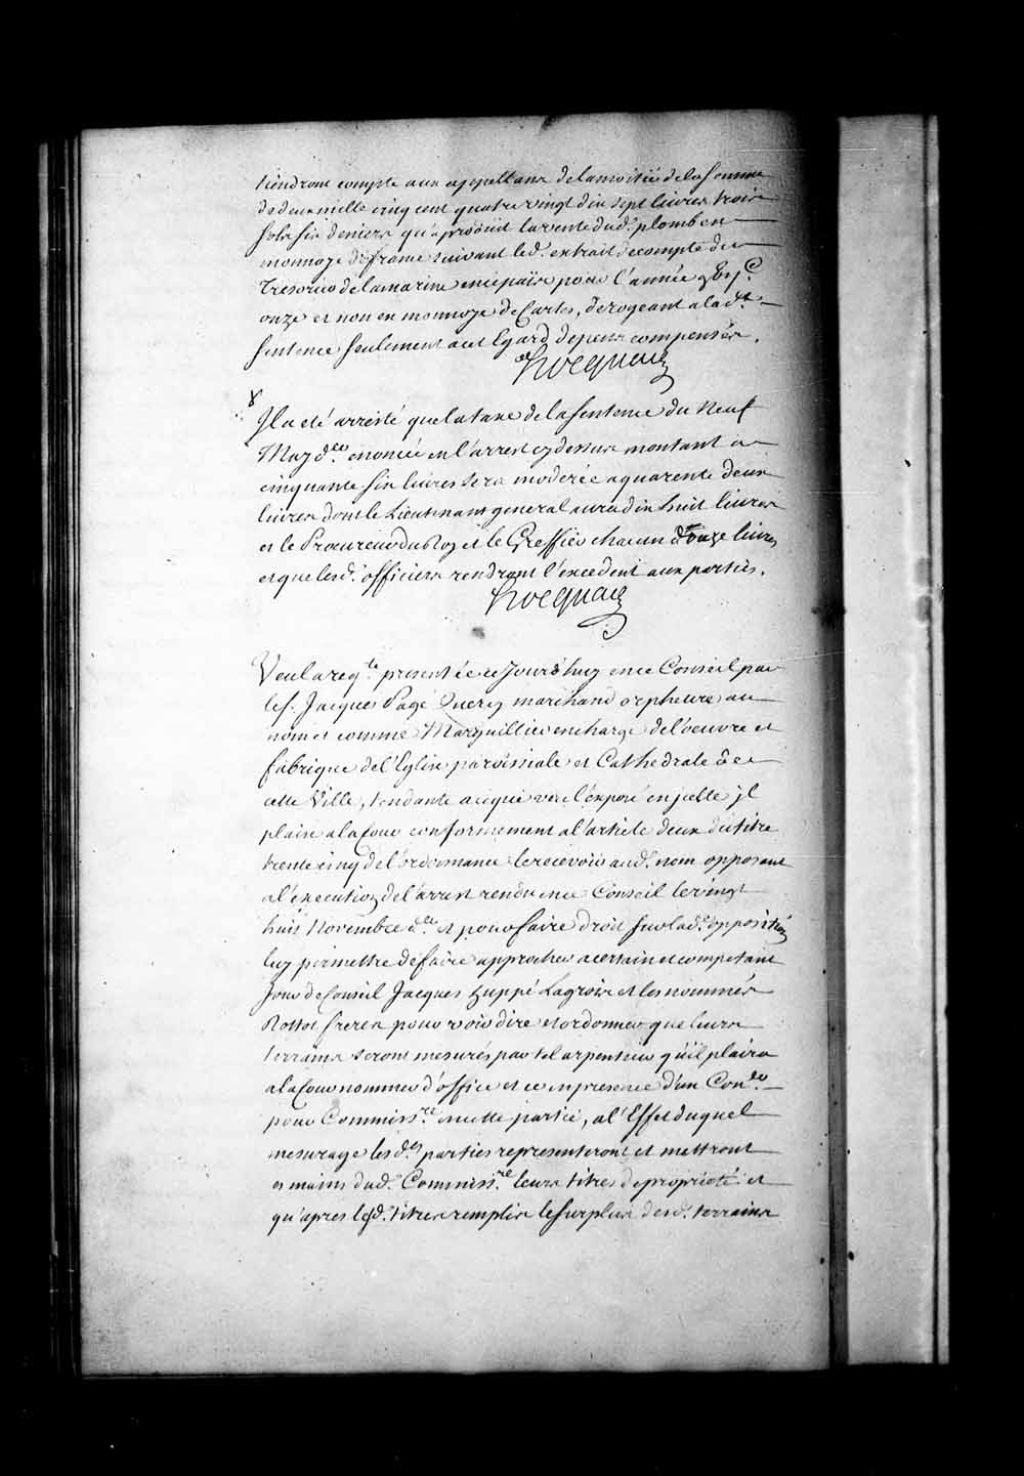 tiendront compte aux appellans de la moitié de la somme
de deux mille cinq cent quatre vingt dix sept livres trois
sols six deniers qu'a produit la vente dud. plomb en
monnoye de france suivant led. extrait de compte du
Tresorier de la marine en ce païs pour l'année
onze et non en monnoye de Cartes, derogeant a lad.
sentence seulement a cet Egard depens compensés.
8
Il a eté arresté que la taxe de la sentence du Neuf
May d.er enoncée en l'arrest cy dessus montant a
cinquante six livres sera moderée a quarente deux
livres dont le Lieutenant general aura dix huit livres
et le Procureur du Roy et le Greffier chacun douze livres
et que lesd. officiers rendront l'excedent aux parties.
Veu la reqte presentée ce Jourd'huy en ce Conseil par
le s. Jacques Pagé Quercy marchand orpheure au
nom et comme Marguillier en charge de l'oeuvre et
fabrique de l'Eglise paroissiale et Cathedrale de
cette Ville, tendante a ce que veu l'exposé en jcelle jl
plaise a la Cour conformement a l'article deux du titre
trente cinq de l'ordonnance le recevoir aud. nom opposant
a l'execution de l'arrest rendu en ce Conseil le vingt
huit Novembre d.er et pour faire droit sur lad. opposition
luy permettre de faire approcher a certain et competant
Jour de Conseil Jacques huppé Lagroix et les nommés
freres pour voir dire et ordonner que leurs
terrains seront mesurés par tel arpenteur qu'il plaira
a la Cour nommer d'office et ce en presence d'un Con.er
pour Commiss.re en cette partie, a l'Effet duquel
mesurage lesd. parties representeront et mettront
es mains dud. Commiss.re leurs titres de proprieté et
qu'apres lesd. titres remplis le surplus desd. terrains